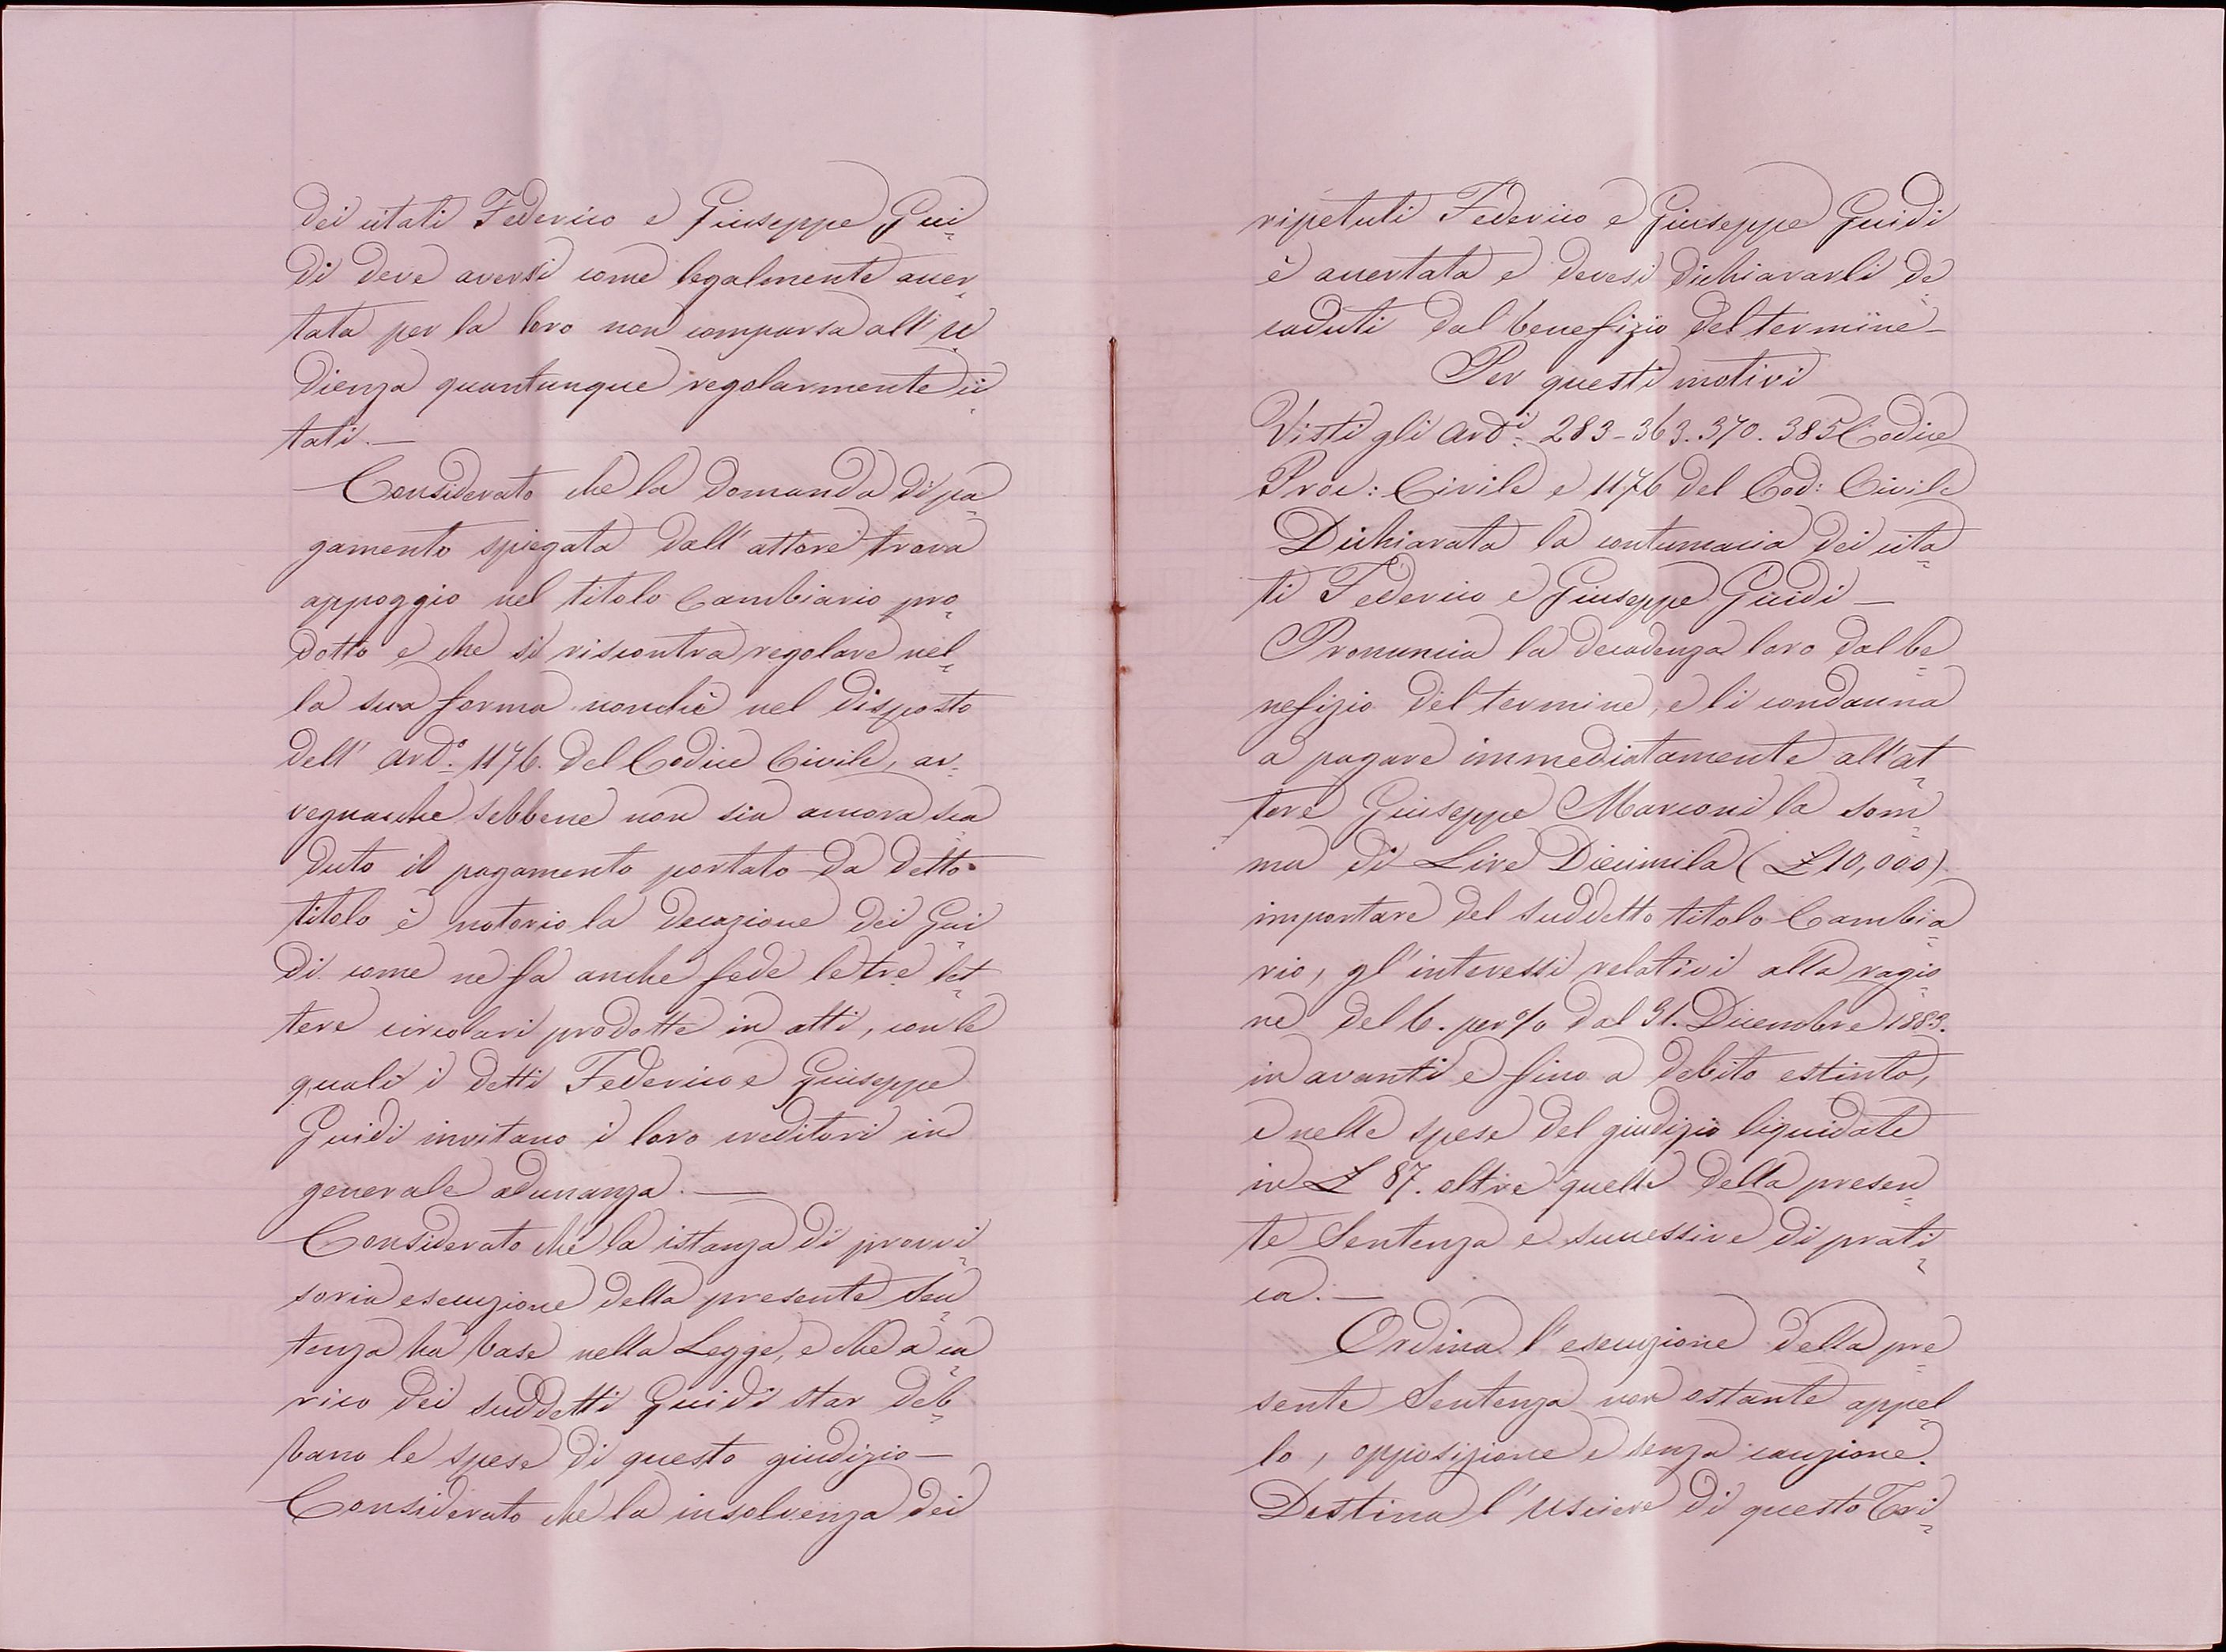 dei citati Federico e Giuseppe Gui=
di deve aversi come legalmente accer=
tata per la loro non comparsa all'U=
dienza quantunque regolarmente ci=
tati. —
Considerato che la domanda di pa=
gamento spiegata dall'attore trova
appoggio nel titolo Cambiario pro=
dotto e che si riscontra regolare nel=
la sua forma nonchè nel disposto
dell' Artº. 1176. del Codice Civile, av=
vegnacche sebbene non sia ancora sca=
duto il pagamento portato da detto
titolo è notorio la decozione dei Gui=
di come ne fa anche fede le tre let=
tere circolari prodotte in atti, con le
quali i detti Federico e Giuseppe
Guidi invitano i loro creditori in
generale adunanza. —
Considerato che la istanza di provvi=
soria esecuzione della presente Sen=
tenza ha base nella Legge, e che a ca=
rico dei suddetti Guidi star deb=
bano le spese di questo giudizio —
Considerato che la insolvenza dei
ripetuti Federico e Giuseppe Guidi
è accertata e devesi dichiararli de=
caduti dal benefizio del termine —
Per questi motivi
Visti gli Artⁱ. 283 - 363. 370. 385 Codice
Proc: Civile e 1176 del Cod: Civile
Dichiarata la contumacia dei cita=
ti Federico e Giuseppe Guidi —
Pronuncia la decadenza loro dal be=
nefizio del termine, e li condanna
a pagare immediatamente all'at=
tore Giuseppe Marconi la som=
ma di Lire Diecimila (£ 10,000)
importare del suddetto titolo Cambia=
rio, gl'interessi relativi alla ragio=
ne del 6. per % dal 31. Dicembre 1883.
in avanti e fino a debito estinto,
e nelle spese del giudizio liquidate
in £ 87. oltre quelle della presen=
te Sentenza e successive di prati=
ca. —
Ordina l'esecuzione della pre=
sente Sentenza non ostante appel=
lo, opposizione e senza cauzione.
Destina l'Usciere di questo Tri=